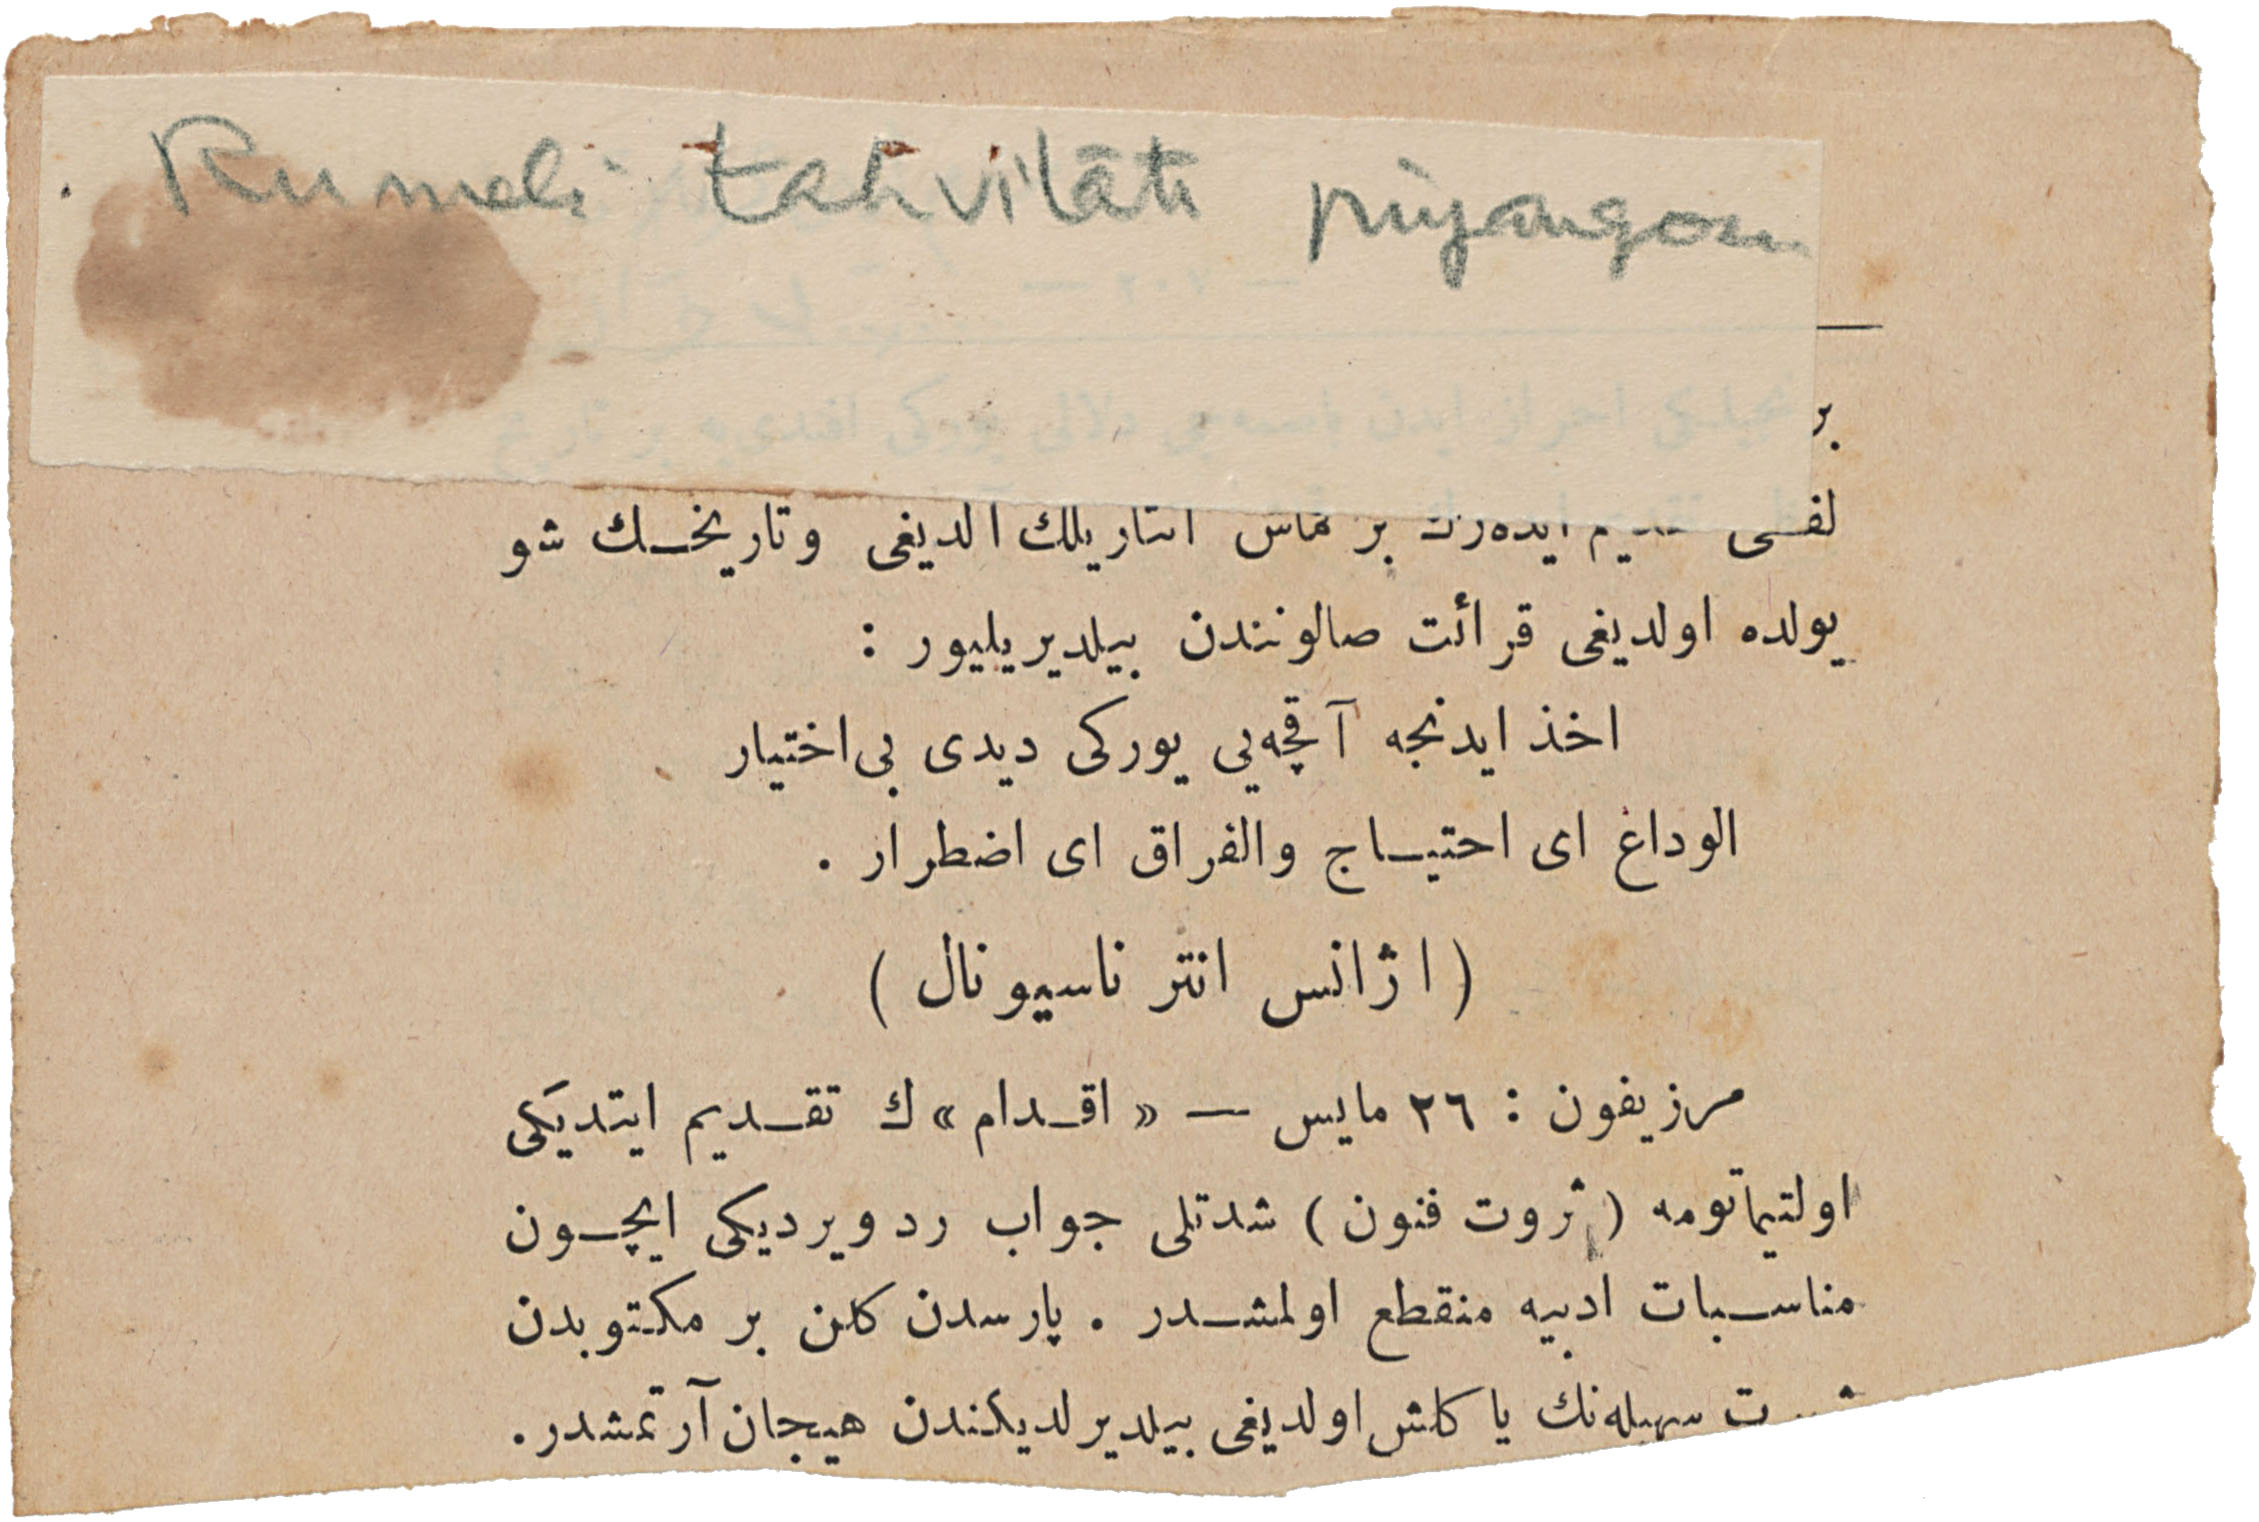 Rumeli tahvilâtı piyangosu
بر
ایده‌رك بر قماش آلدیغی وتاریخـك شو
یولده اولدیغی قرائت صالونندن بیلدیریلیور :
اخذ ایدنجه آقچه‌یی یورکی دیدی بی‌اختیار
الوداع ای احتیـاج والفراق ای اضطرار .
( اژانس انترناسیونال )
مرزیفون : ٢٦ مایس — « اقـدام » ك تقـدیم ایتدیکی
اولتیماتومه ( ثروت فنون ) شدتلی جواب رد ویردیکی ایچـون
مناسـبات ادبیه منقطع اولمشـدر . پارسدن کلن بر مکتوبدن
سهیله‌نك یا کلش اولدیغی بیلدیرلدیکندن هیجان آرتمشدر .